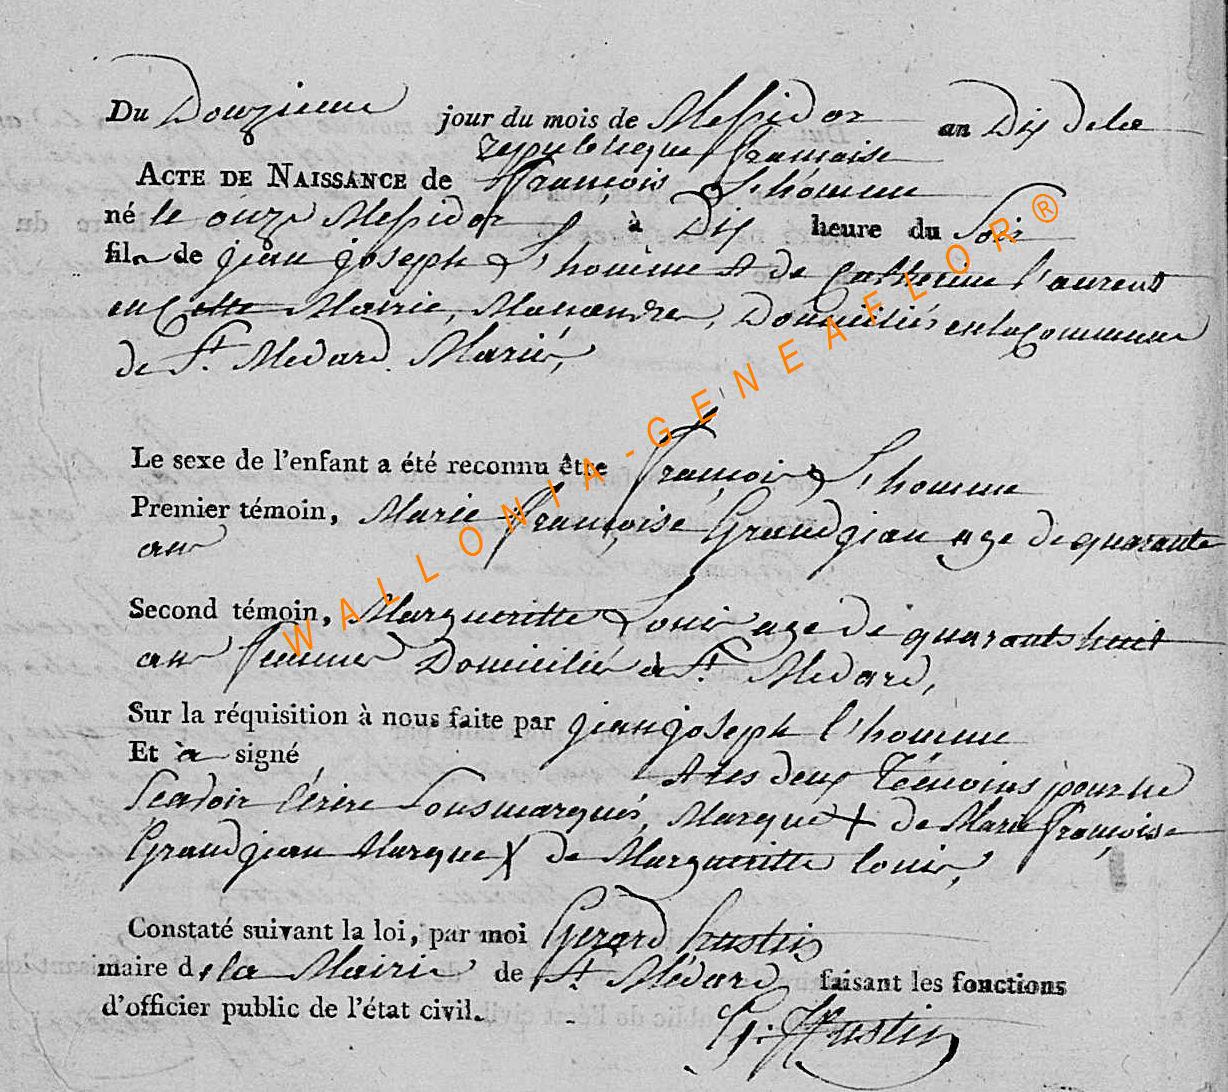 Du Douzieme jour du mois de Messidor an Dix de la
republique française
ACTE DE NAISSANCE de François L'homme
né le onze Messidor à Dix heure du Soir
fils de jean joseph L'homme & de Catherine l'aurent
en Cette Mairie, Domiciliés en la Commune
de St. Medard Mariés,
Le sexe de l'enfant a été reconnu être François L'homme
Premier témoin, Marie françoise Grandjean age de quarante
ans
Second témoin, Margueritte Louis age de quarante huit
ans femme Domiciliés à St. Medard,
Sur la réquisition à nous faite par jean joseph l'homme
Et à signé & les deux Témoins pour ne
Scavoir Ecrire Sousmarqués, Marque + de Marie françoise
Grandjean Marque X de Margueritte louis,
Constaté suivant la loi, par moi Gerard hustin
maire de la Mairie de St Médard faisant les fonctions
d'officier public de l'état civil.
G. Hustin
WALLONIA-GENEAFLOR®